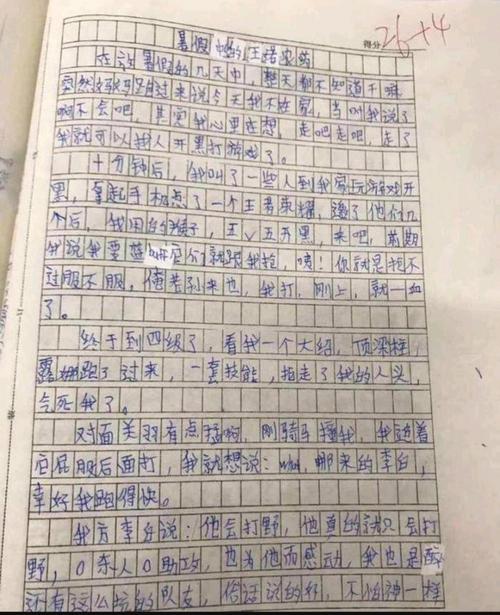 得分 26+4
暑假中的王者农药
在这暑假的几天中，整天都不知道干嘛
突然妈妈跑过来说今天我不在家，当时我说了
啊不会吧，其实我心里在想，走吧走吧，走了
我就可以找人开黑打游戏了。
十分钟后，我叫了一些人到我家玩游戏开
黑，拿起手机点了一个王者荣耀，邀了他们几
个后，我用的猴子，五V五开黑，来吧，前期
我说我要蓝 他们就跟我抢，咦！你就是抢不
过服不服，俺老孙来也，我打，刚上，就一血
了。
终于到四级了，看我一个大招，顶梁柱，
露娜跑了过来，一套技能，抢走了我的人头，
气死我了。
对面关羽有点猛啊，刚骑马撞我，我追着
它屁股后面打，我就想说：哪来的李白，
幸好我跑得快。
我方李白说：他会打野，他真的就只会打
野，0杀人0助攻，也为他而感动，我也是醉
还有这么坑的队友，俗话说的好，不怕神一样